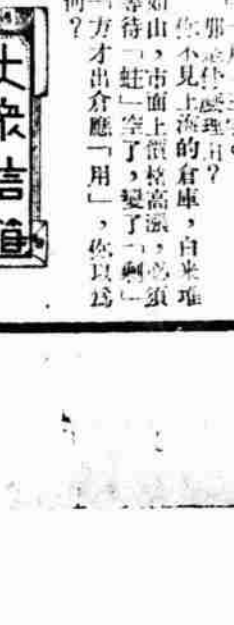 那是什麼理由？
你不見上海的倉庫，白米堆
如山，市面上價格高漲，必須
等待「蛀」空了，變了「剩」
「方才出倉應「用」，你以爲
何？
大衆信箱